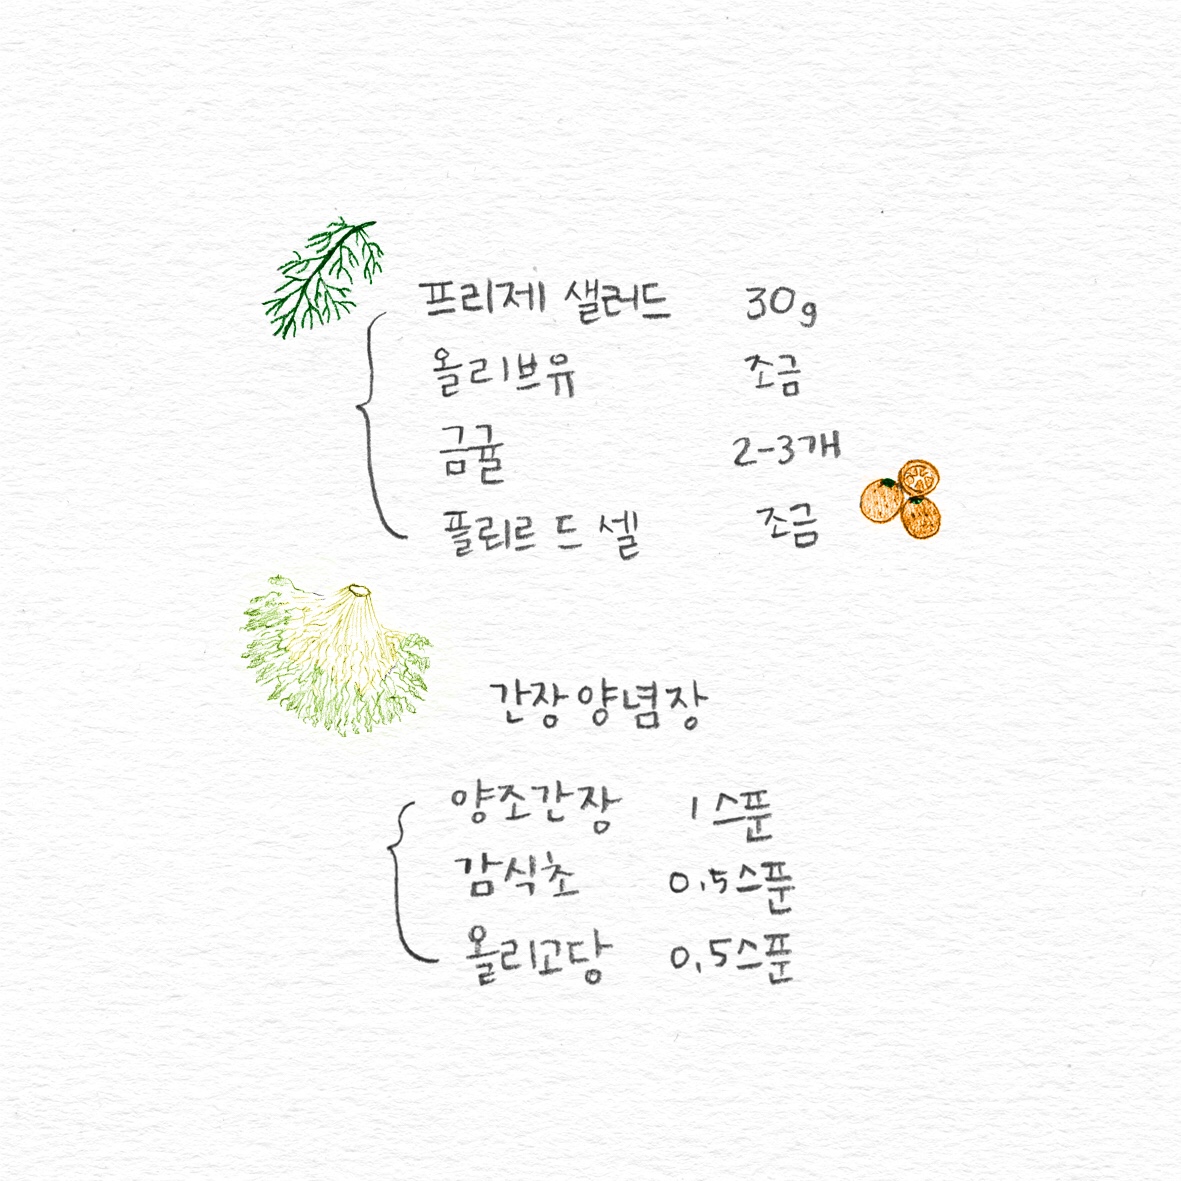 프리제 샐러드 30g
올리브유 조금
금귤 2-3개
플뢰르 드 셀 조금
간장양념장
양조간장 1스푼
감식초 0.5스푼
올리고당 0.5스푼